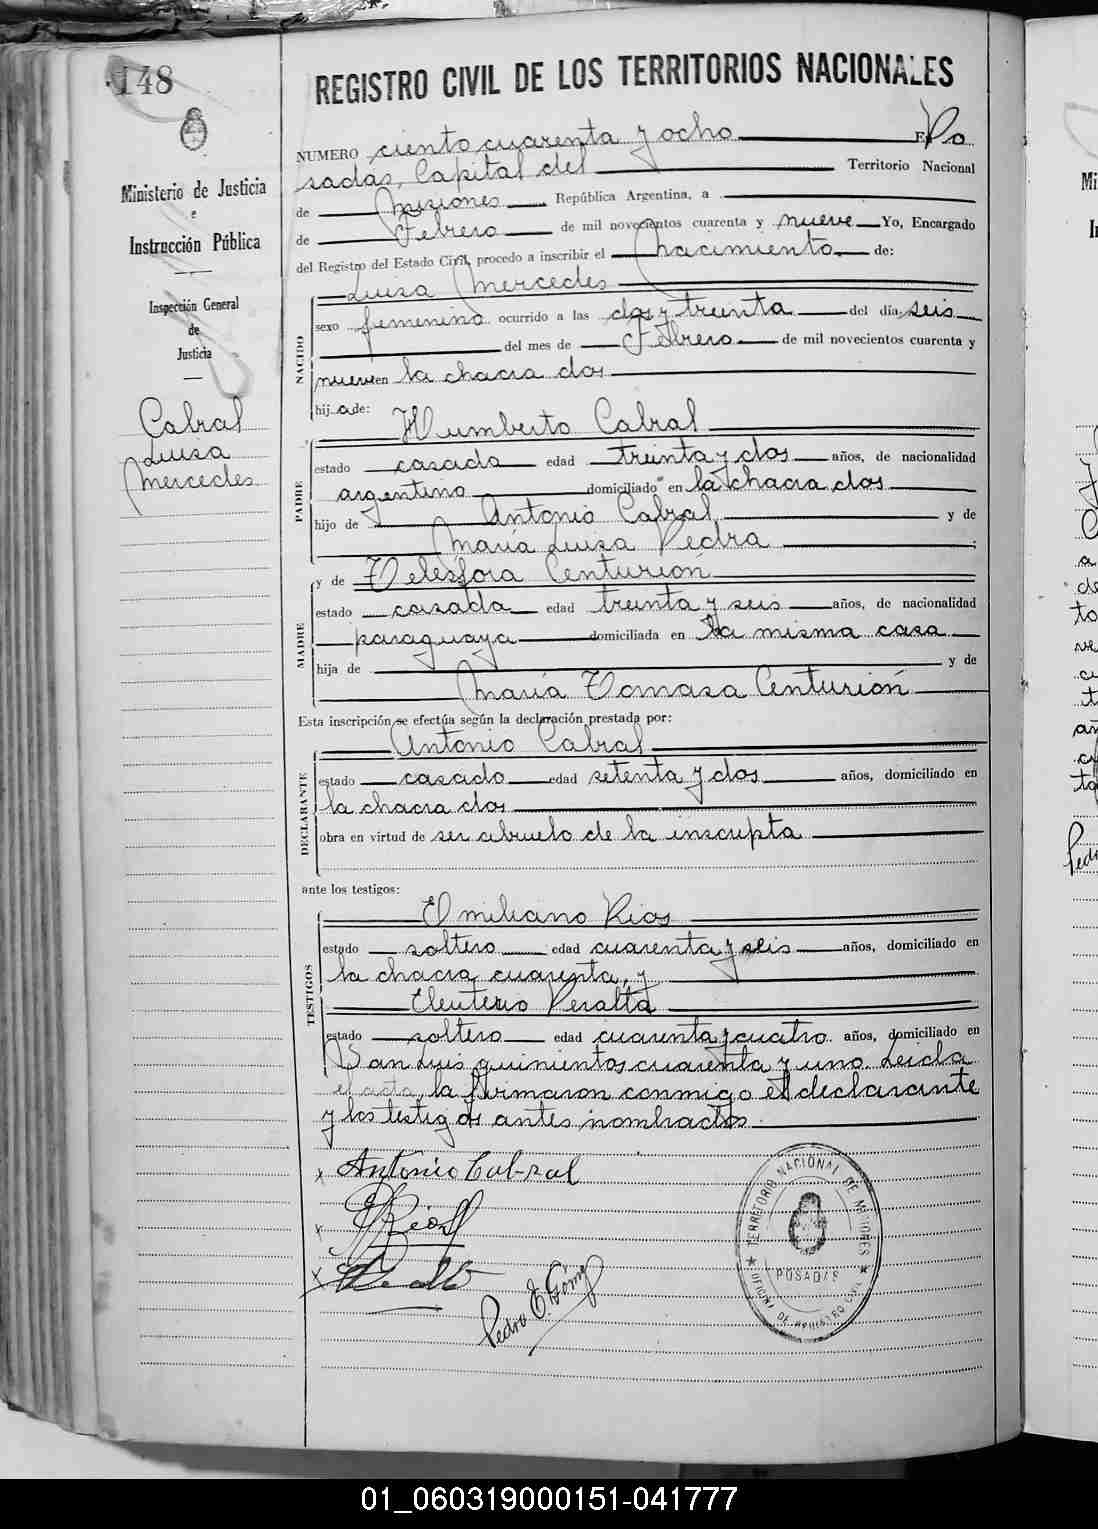 148
REGISTRO CIVIL DE LOS TERRITORIOS NACIONALES
Ministerio de Justicia
e
Instrucción Pública
Inspección General
de
Justicia
Cabral
Luisa
Mercedes
NUMERO ciento cuarenta y ocho En Po
sadas, Capital del Territorio Nacional
de Misiones República Argentina, a
de Febrero de mil novecientos cuarenta y nueve Yo, Encargado
del Registro del Estado Civil, procedo a inscribir el nacimiento de:
NACIDO
Luisa Mercedes
sexo femenino ocurrido a las dos y treinta del día seis
del mes de Febrero de mil novecientos cuarenta y
nueve en la chacra dos
hija de:
PADRE
Humberto Cabral
estado casado edad treinta y dos años, de nacionalidad
argentino domiciliado en la chacra dos
hijo de Antonio Cabral y de
María Luisa Vedra
MADRE
y de Telésfora Centurión
estado casada edad treinta y seis años, de nacionalidad
paraguaya domiciliada en la misma casa
hija de y de
María Tomasa Centurión
Esta inscripción se efectúa según la declaración prestada por:
DECLARANTE
Antonio Cabral
estado casado edad setenta y dos años, domiciliado en
la chacra dos
obra en virtud de ser abuelo de la inscripta
ante los testigos:
TESTIGOS
Emiliano Rios
estado soltero edad cuarenta y seis años, domiciliado en
la chacra cuarenta, y
Eleuterio Peralta
estado soltero edad cuarenta y cuatro años, domiciliado en
San Luis quinientos cuarenta y uno. Leida
el acta, la firmaron conmigo el declarante
y los testigos antes nombrados.
x Antonio Cabral
x Rios
x
Pedro E. Gómez
TERRITORIO NACIONAL DE MISIONES
POSADAS
OFICINA DE REGISTRO CIVIL
01_060319000151-041777